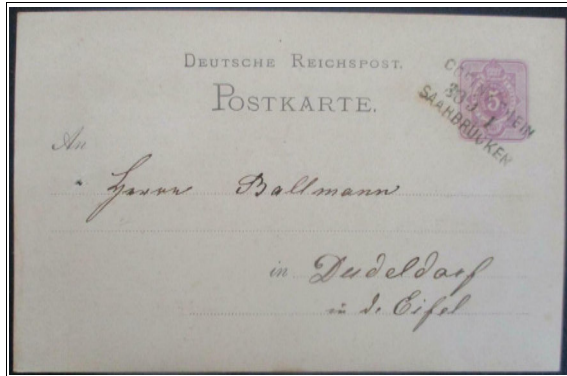 DEUTSCHE REICHSPOST.
POSTKARTE.
5
SAARBRÜCKEN
An
Herrn Ballmann
in Dudeldorf
in d. Eifel